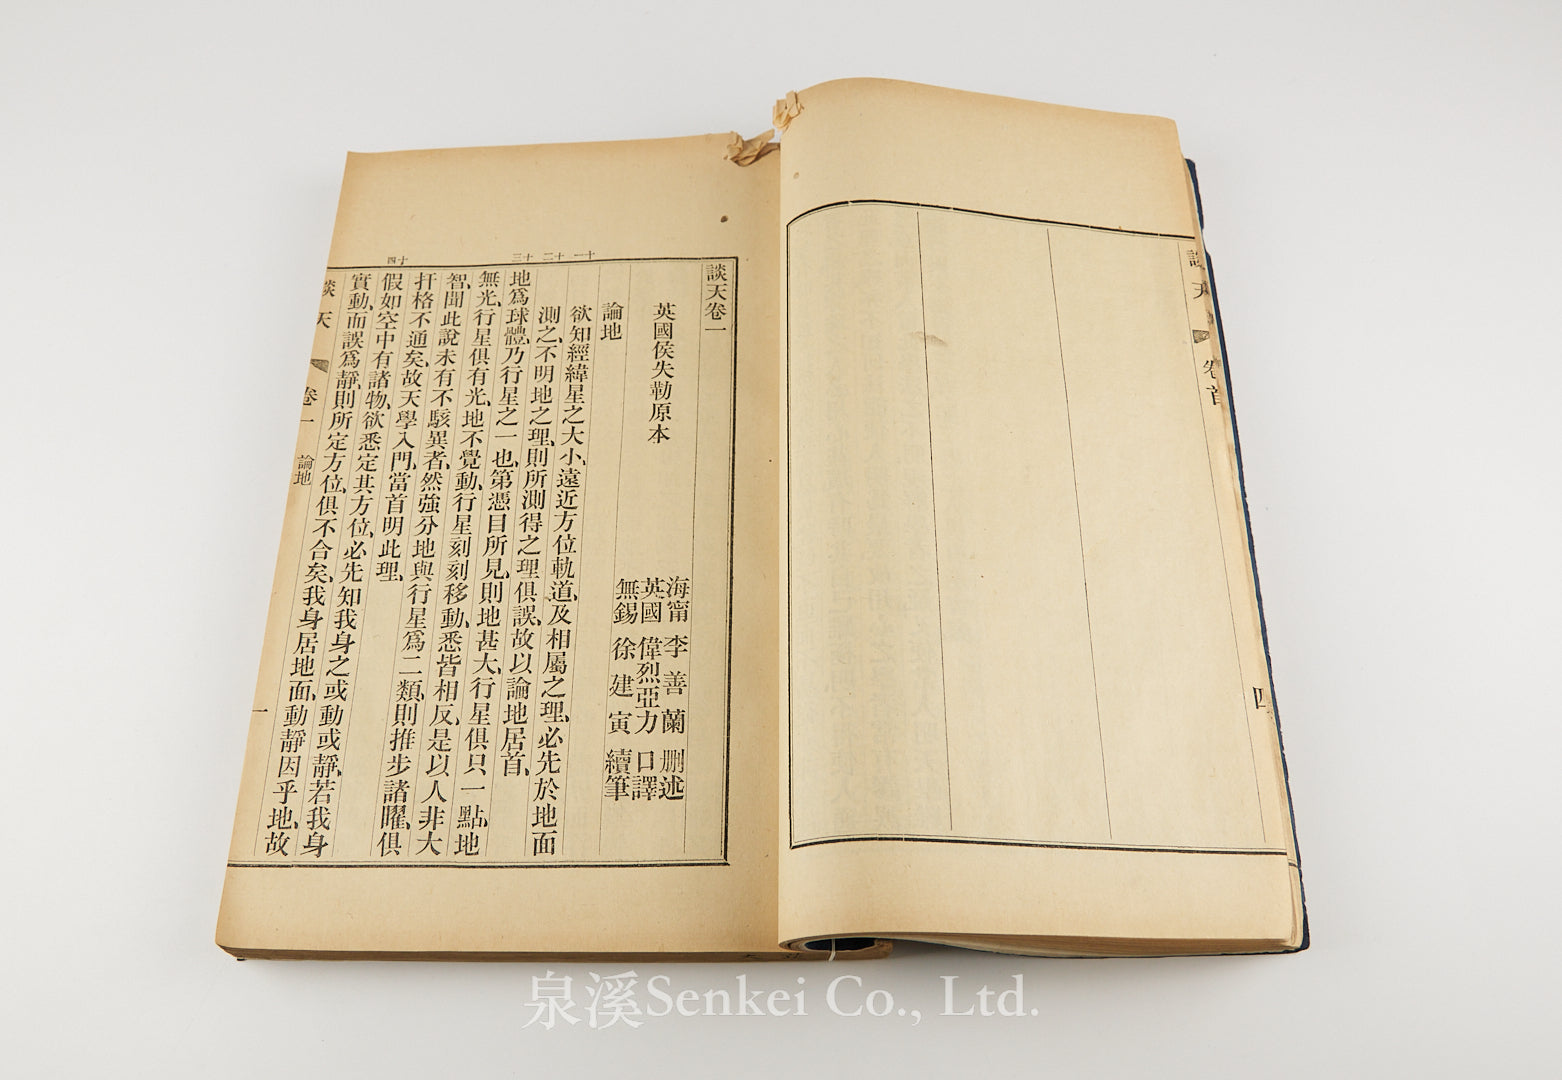 談天
卷首
四
談天卷一
英國侯失勒原本
海甯 李善蘭 刪述
英國 偉烈亞力 口譯
無錫 徐建寅 續筆
論地
十一
十二
十三
十四
欲知經緯星之大小、遠近方位軌道、及相屬之理、必先於地面
測之、不明地之理、則所測得之理俱誤、故以論地居首、
地爲球體、乃行星之一也、第憑目所見、則地甚大、行星俱只一點、地
無光、行星俱有光、地不覺動、行星刻刻移動、悉皆相反、是以人非大
智、聞此說未有不駭異者、然強分地與行星爲二類、則推步諸曜、俱
扞格不通矣、故天學入門、當首明此理、
假如空中有諸物、欲悉定其方位、必先知我身之或動或靜、若我身
實動、而誤爲靜、則所定方位、俱不合矣、我身居地面、動靜因乎地、故
談天
卷一
論地
一
泉溪Senkei Co., Ltd.